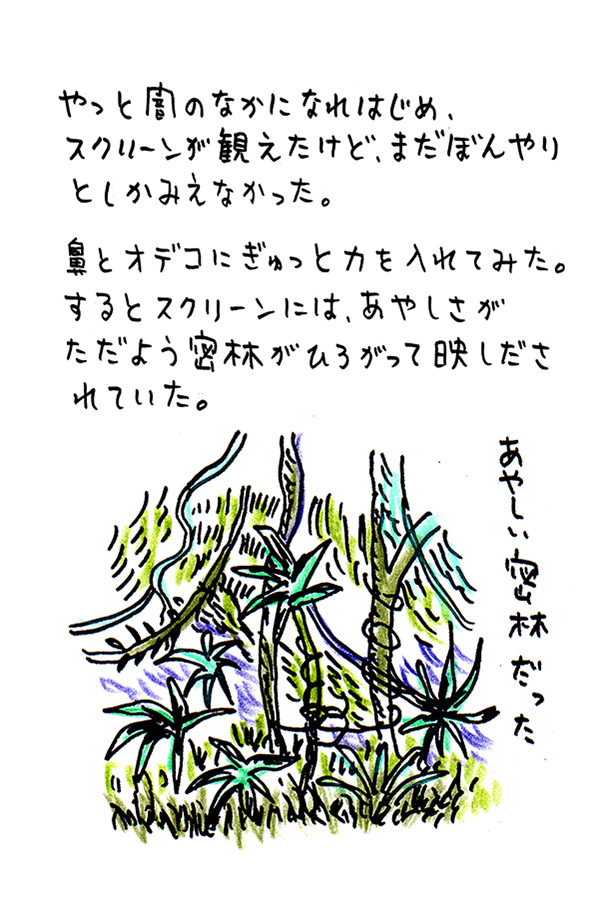 やっと闇のなかになれはじめ、
スクリーンが観えたけど、まだぼんやり
としかみえなかった。
鼻とオデコにぎゅっと力を入れてみた。
するとスクリーンには、あやしさが
ただよう密林がひろがって映しださ
れていた。
あやしい密林だった